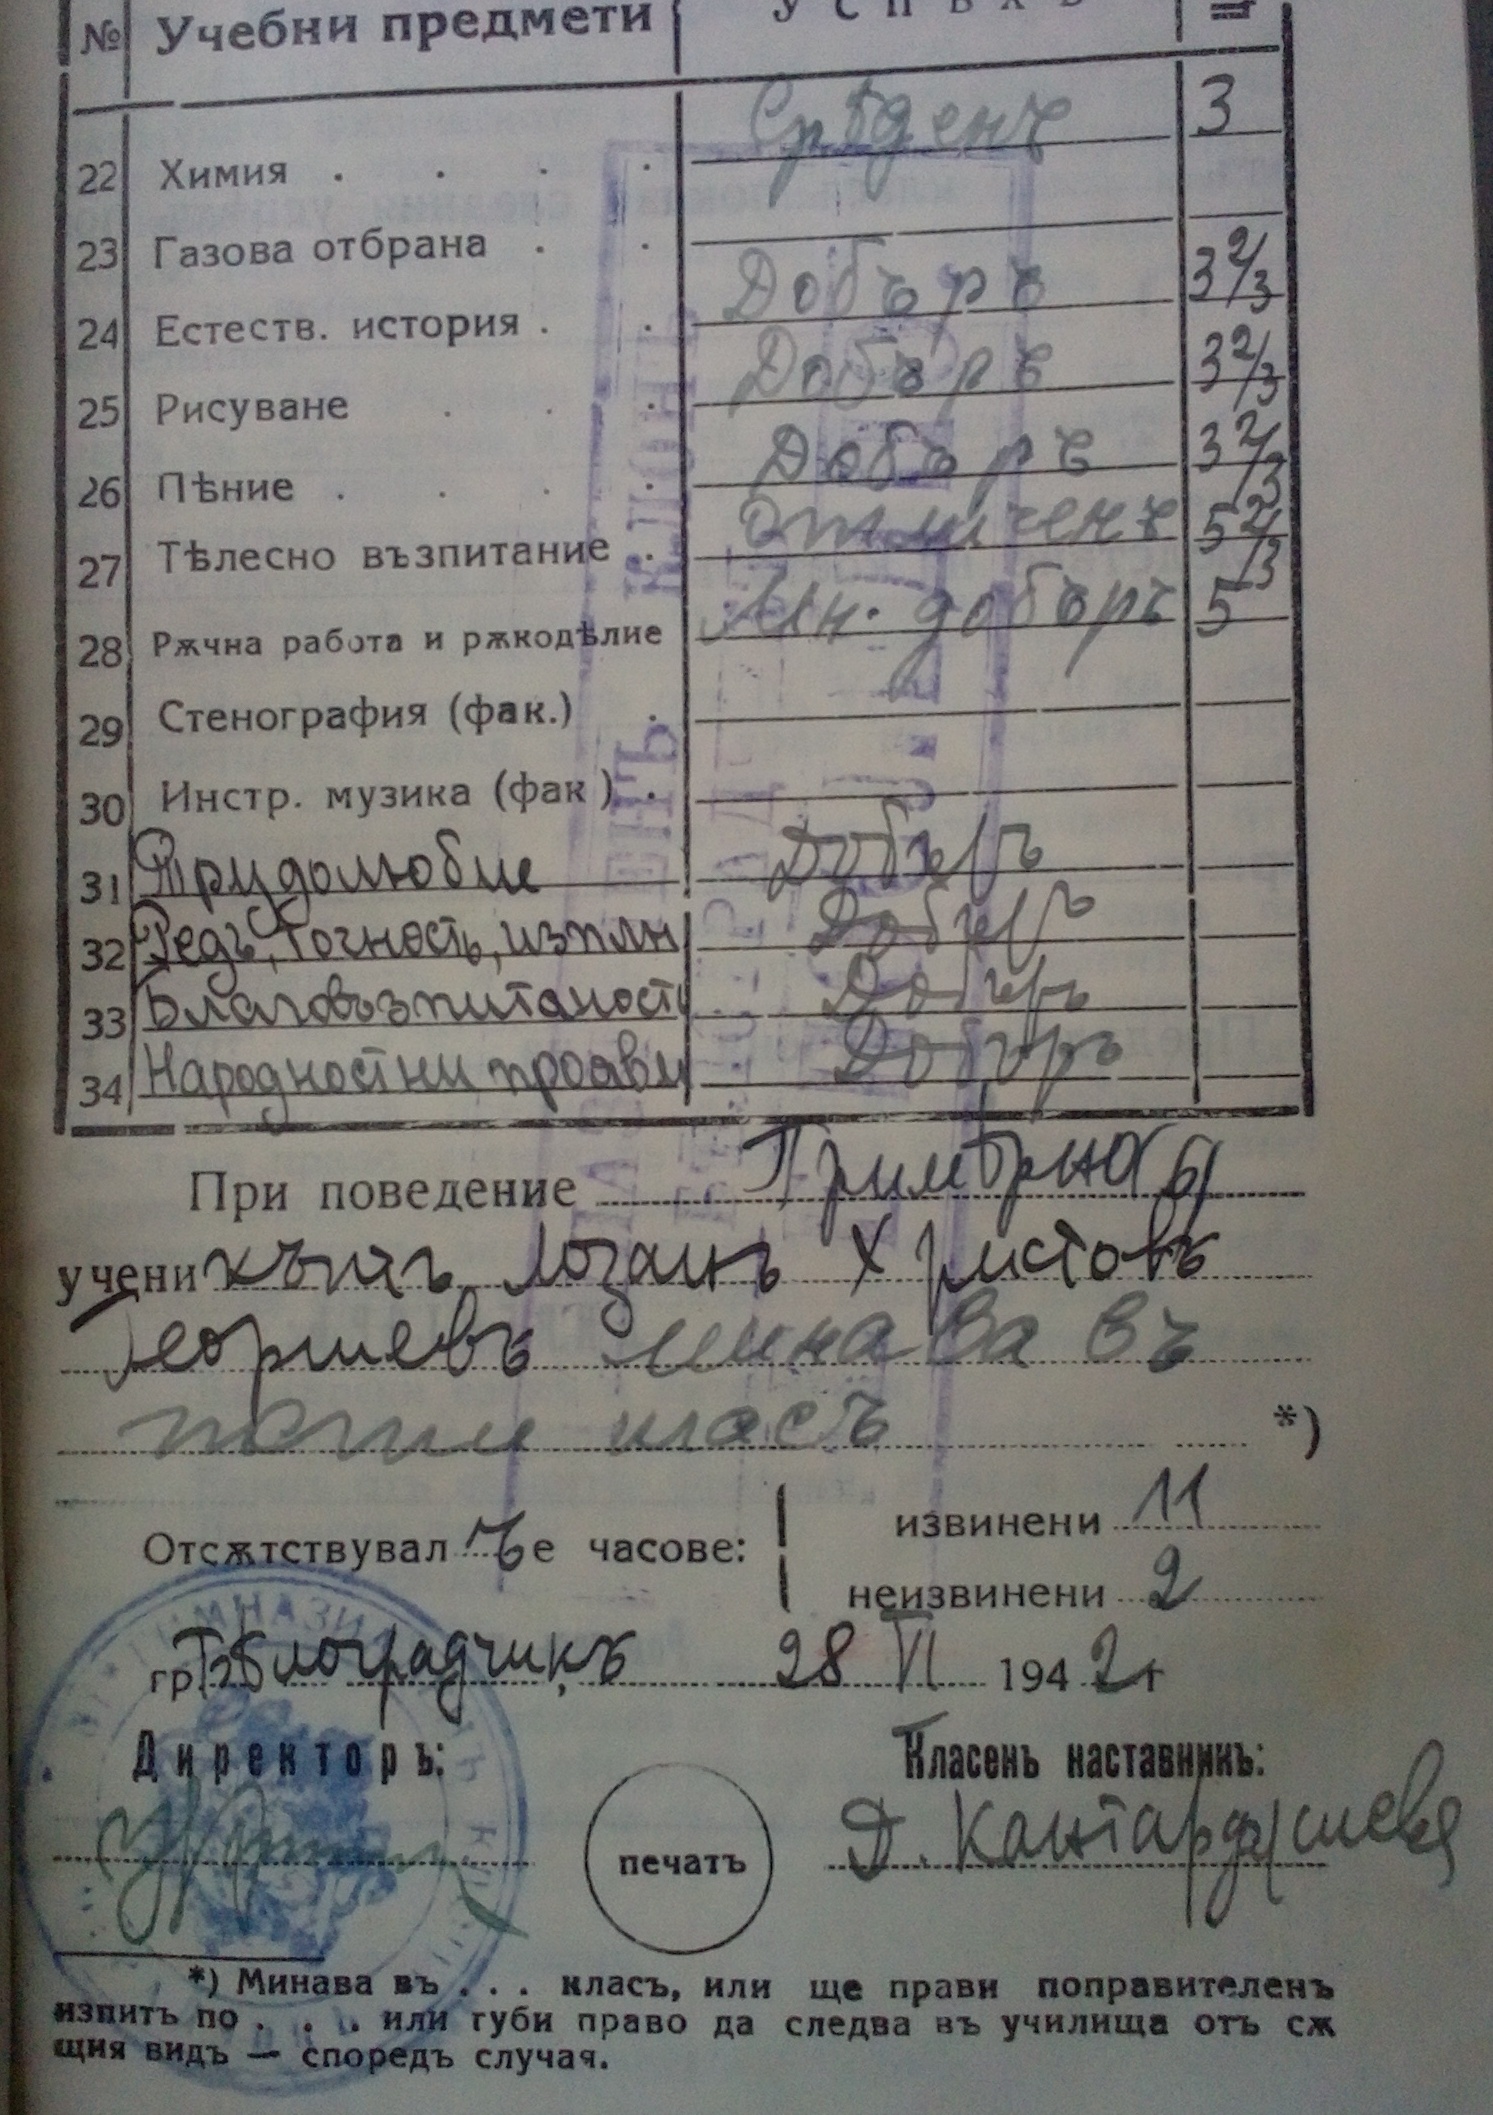 № Учебни предмети УСПѢХЪ
22 Химия . . . . Срѣденъ 3
23 Газова отбрана . .
24 Естеств. история . . Добъръ 3 2/3
25 Рисуване . . . Добъръ 3 2/3
26 Пѣние . . . . Добъръ 3 2/3
27 Тѣлесно възпитание . отличенъ 5 2/3
28 Рѫчна работа и рѫкодѣлие Мн. добъръ 5
29 Стенография (фак.) .
30 Инстр. музика (фак ) .
31 Трудолюбие Добъръ
32 Редъ, точность, изплн Добъръ
33 Благовъзпитаность Добъръ
34 Народностни прояви Добъръ
При поведение Примѣрно (6)
ученикътъ Лозанъ Христовъ
Георгиевъ минава въ
класъ *)
Отсѫтствувал е часове: извинени 11
неизвинени 2
гр. Бѣлоградчикъ 28 VI 1942 г
Директоръ: Класенъ наставникъ:
печатъ Д. Кантарджиева
*) Минава въ . . . класъ, или ще прави поправителенъ
изпитъ по . . . или губи право да следва въ училища отъ сѫ
щия видъ — споредъ случая.